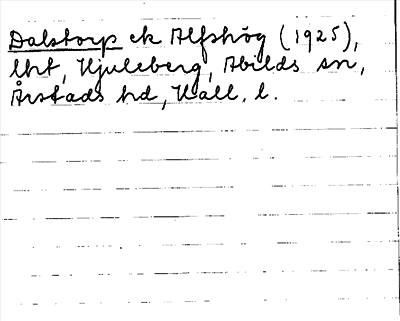 Dalstorp ek Alfshög (1925),
lht, Hjuleberg, Abilds sn,
Årstads hd, Hall. l.